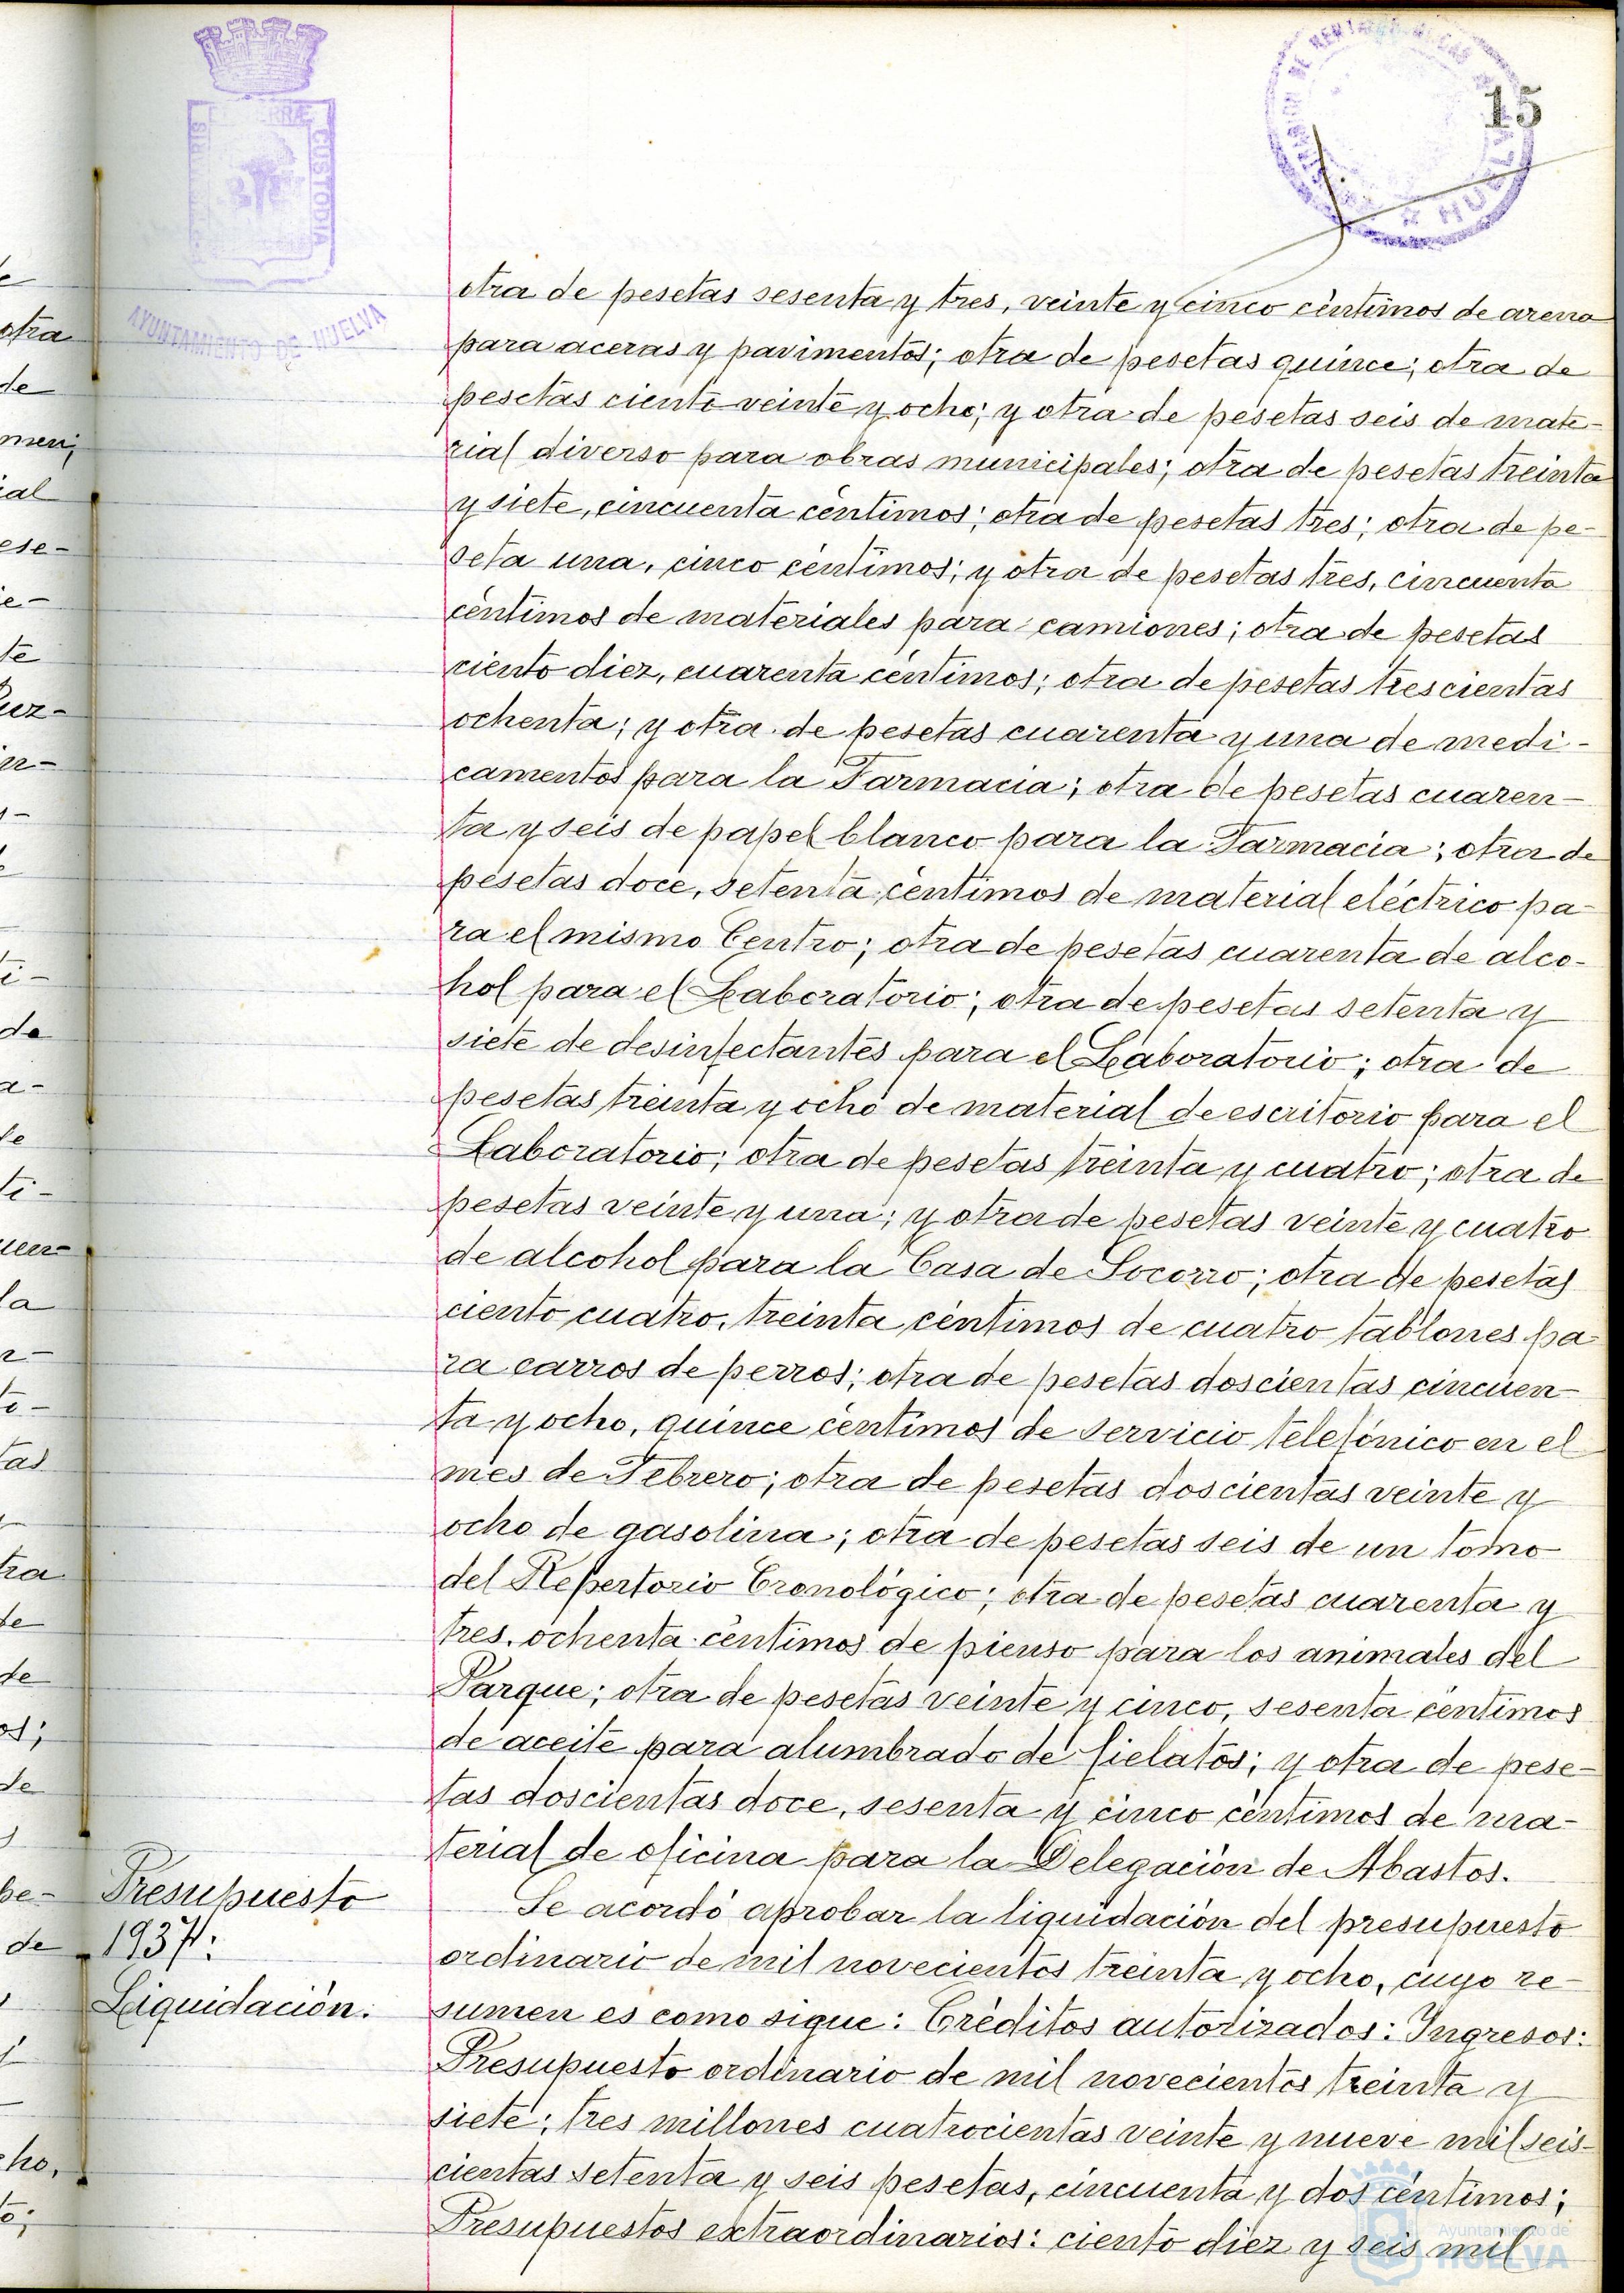 15
PORTUS MARIS ET TERRÆ CUSTODIA
AYUNTAMIENTO DE HUELVA
HUELVA
otra de pesetas sesenta y tres, veinte y cinco céntimos de arena
para aceras y pavimentos; otra de pesetas quince; otra de
pesetas ciento veinte y ocho; y otra de pesetas seis de mate-
rial diverso para obras municipales; otra de pesetas treinta
y siete, cincuenta céntimos; otra de pesetas tres; otra de pe-
seta una, cinco céntimos; y otra de pesetas tres, cincuenta
céntimos de materiales para camiones; otra de pesetas
ciento diez, cuarenta céntimos; otra de pesetas trescientas
ochenta; y otra de pesetas cuarenta y una de medi-
camentos para la Farmacia; otra de pesetas cuaren-
ta y seis de papel blanco para la Farmacia; otra de
pesetas doce, setenta céntimos de material eléctrico pa-
ra el mismo Centro; otra de pesetas cuarenta de alco-
hol para el Laboratorio; otra de pesetas setenta y
siete de desinfectantes para el Laboratorio; otra de
pesetas treinta y ocho de material de escritorio para el
Laboratorio; otra de pesetas treinta y cuatro; otra de
pesetas veinte y una; y otra de pesetas veinte y cuatro
de alcohol para la Casa de Socorro; otra de pesetas
ciento cuatro, treinta céntimos de cuatro tablones pa-
ra carros de perros; otra de pesetas doscientas cincuen-
ta y ocho, quince céntimos de servicio telefónico en el
mes de Febrero; otra de pesetas doscientas veinte y
ocho de gasolina; otra de pesetas seis de un tomo
del Repertorio Cronológico; otra de pesetas cuarenta y
tres, ochenta céntimos de pienso para los animales del
Parque; otra de pesetas veinte y cinco, sesenta céntimos
de aceite para alumbrado de fielatos; y otra de pese-
tas doscientas doce, sesenta y cinco céntimos de ma-
terial de oficina para la Delegación de Abastos.
Presupuesto
1937:
Liquidación.
Se acordó aprobar la liquidación del presupuesto
ordinario de mil novecientos treinta y ocho, cuyo re-
sumen es como sigue: Créditos autorizados: Ingresos:
Presupuesto ordinario de mil novecientos treinta y
siete; tres millones cuatrocientas veinte y nueve mil seis-
cientas setenta y seis pesetas, cincuenta y dos céntimos;
Presupuestos extraordinarios: ciento diez y seis mil
Ayuntamiento de
HUELVA